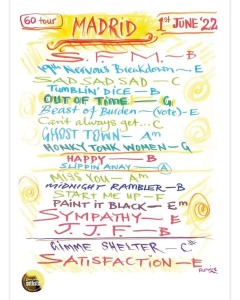 60 tour MADRID 1ST JUNE '22
S.F.M. – B
19th Nervous Breakdown – E
SAD SAD SAD – C
TUMBLIN' DICE – B
OUT OF TIME – G
Beast of Burden – (vote) – E
Can't always get... C
GHOST TOWN – Am
HONKY TONK WOMEN – G
HAPPY – B
SLIPPIN AWAY – A
MISS YOU – Am
MIDNIGHT RAMBLER – B
START ME UP – F
PAINT it BLACK – Em
SYMPATHY – E
J.J.F. – B
GIMME SHELTER – C
SATISFACTION – E